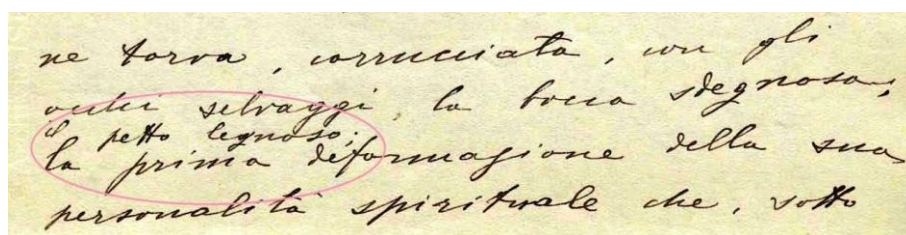 ne torva, corrucciata, con gli
occhi selvaggi, la bocca sdegnosa,
il petto legnoso;
la prima deformazione della sua
personalità spirituale che, sotto